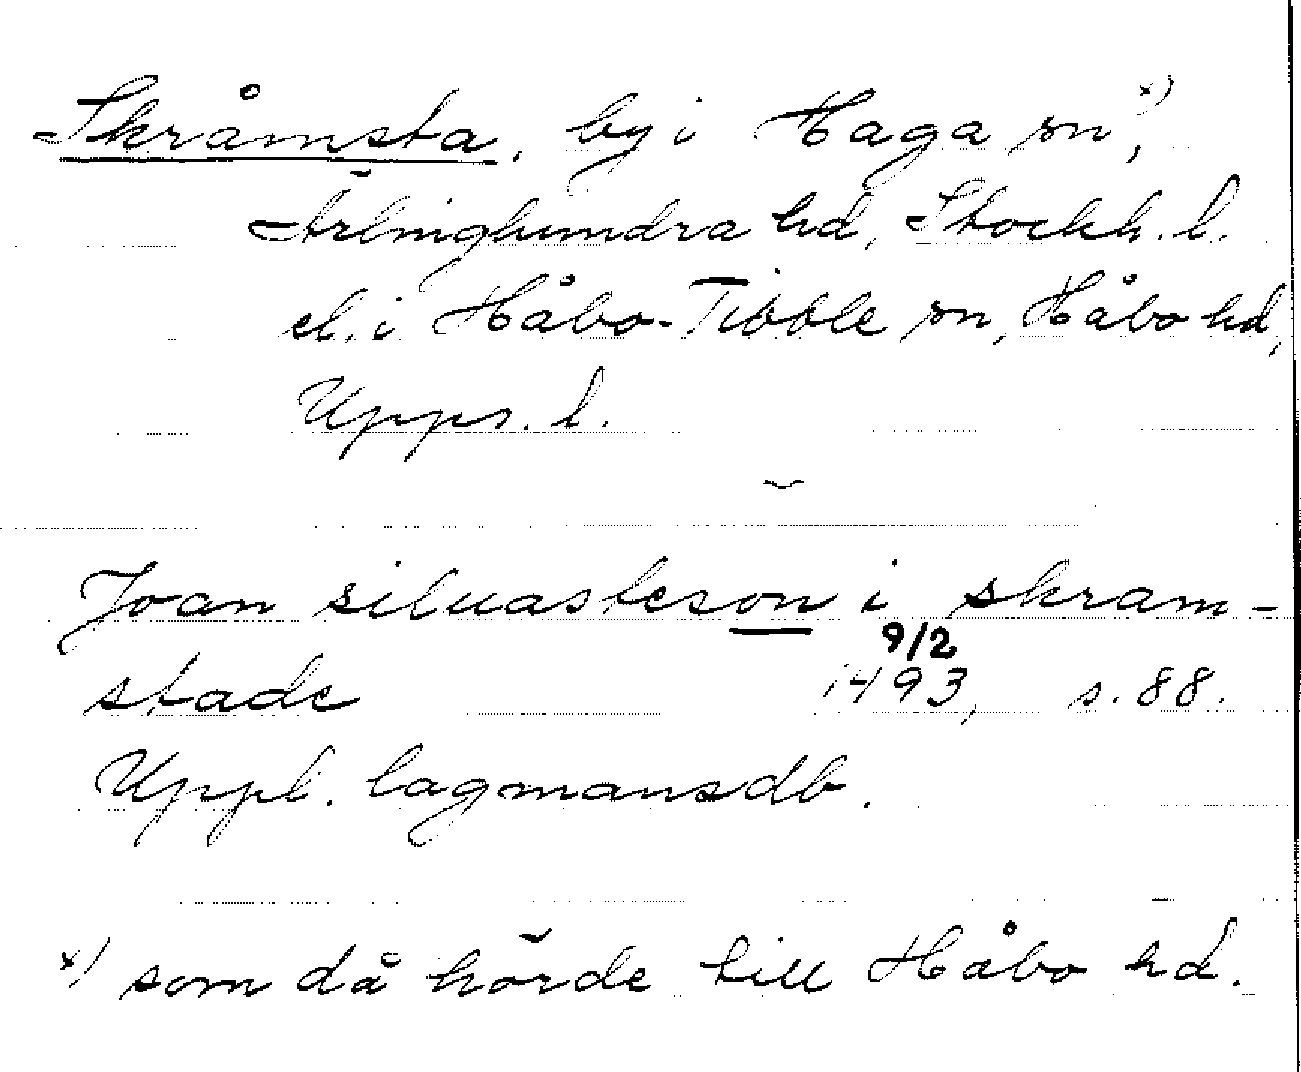 Skråmsta, by i Haga sn x),
Ärlinghundra hd, Stockh. l.
el. i Håbo-Tibble sn, Håbo hd,
Upps. l.
Joan siluasteson i skram-
stade 9/2 1493, s. 88.
Uppl. lagmansdb.
x) som då hörde till Håbo hd.